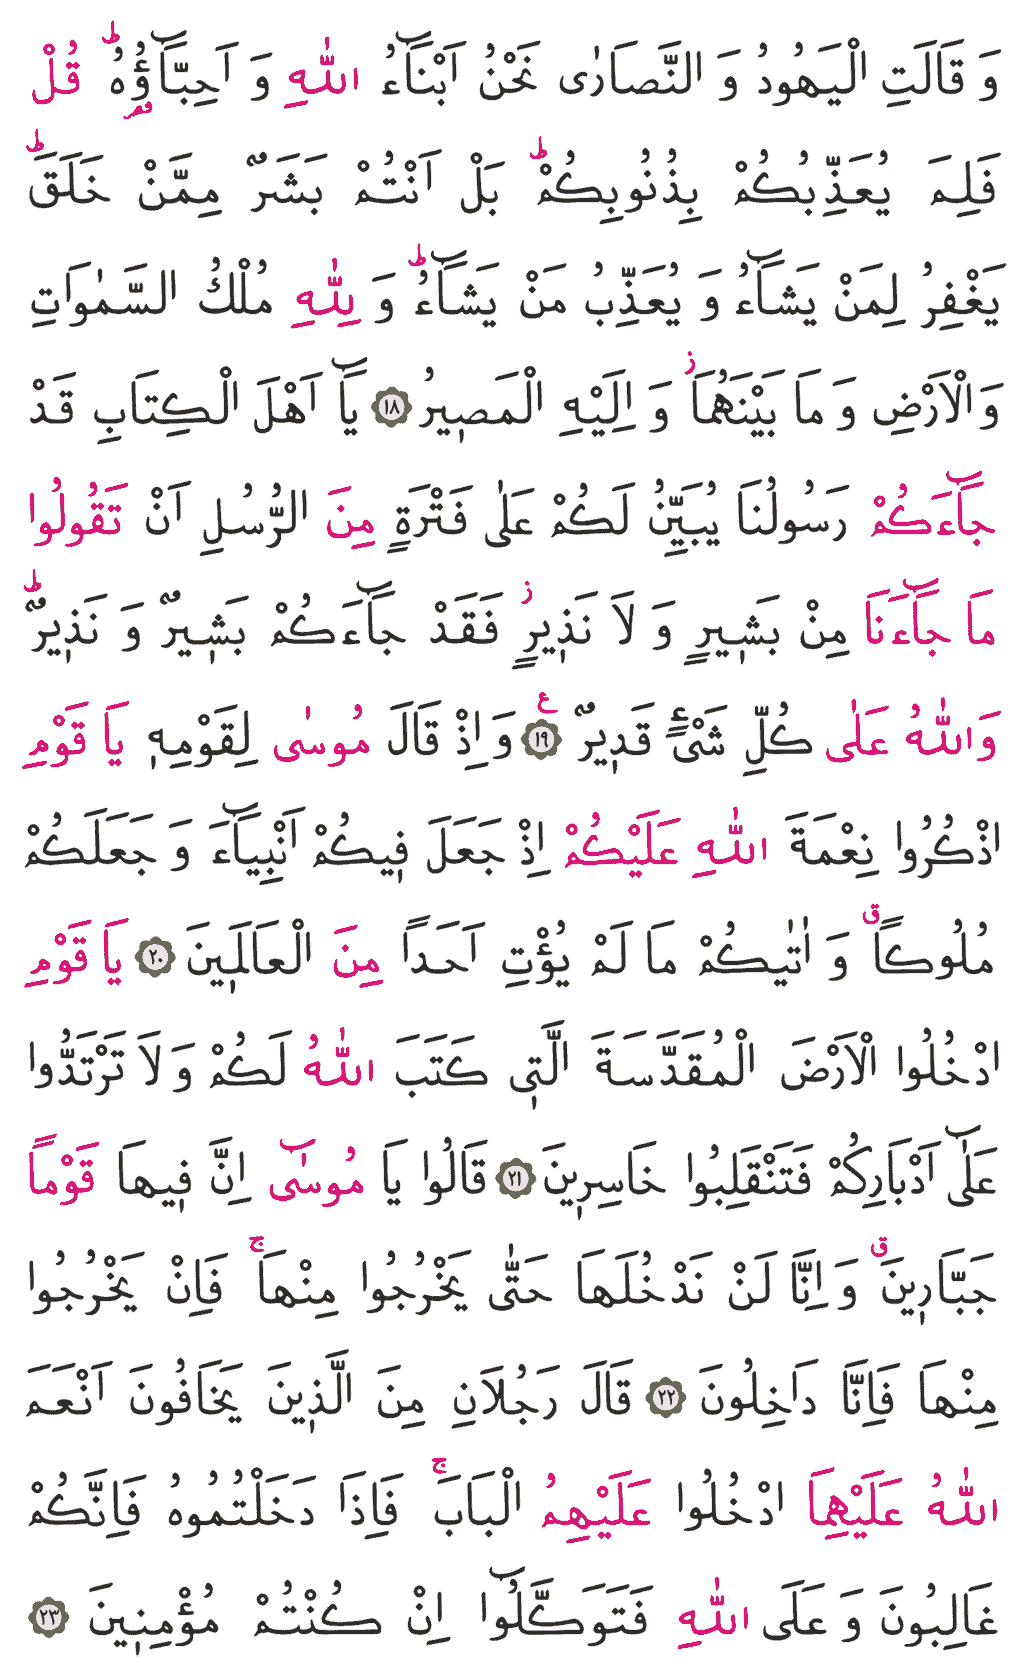 وَ قَالَتِ الْيَهُودُ وَ النَّصَارٰى نَحْنُ اَبْنَٓاءُ اللّٰهِ وَ اَحِبَّٓاؤُ۬هُۜ قُلْ
فَلِمَ يُعَذِّبُكُمْ بِذُنُوبِكُمْۜ بَلْ اَنْتُمْ بَشَرٌ مِمَّنْ خَلَقَۜ
يَغْفِرُ لِمَنْ يَشَٓاءُ وَ يُعَذِّبُ مَنْ يَشَٓاءُۜ وَ لِلّٰهِ مُلْكُ السَّمٰوَاتِ
وَالْاَرْضِ وَ مَا بَيْنَهُمَاۘ وَ اِلَيْهِ الْمَص۪يرُ ﴿١٨﴾ يَٓا اَهْلَ الْكِتَابِ قَدْ
جَٓاءَكُمْ رَسُولُنَا يُبَيِّنُ لَكُمْ عَلٰى فَتْرَةٍ مِنَ الرُّسُلِ اَنْ تَقُولُوا
مَا جَٓاءَنَا مِنْ بَش۪يرٍ وَ لَا نَذ۪يرٍۘ فَقَدْ جَٓاءَكُمْ بَش۪يرٌ وَ نَذ۪يرٌۜ
وَاللّٰهُ عَلٰى كُلِّ شَيْءٍ قَد۪يرٌ ﴿١٩﴾ ع وَ اِذْ قَالَ مُوسٰى لِقَوْمِه۪ يَا قَوْمِ
اذْكُرُوا نِعْمَةَ اللّٰهِ عَلَيْكُمْ اِذْ جَعَلَ ف۪يكُمْ اَنْبِيَٓاءَ وَ جَعَلَكُمْ
مُلُوكاًۗ وَ اٰتٰيكُمْ مَا لَمْ يُؤْتِ اَحَداً مِنَ الْعَالَم۪ينَ ﴿٢٠﴾ يَا قَوْمِ
ادْخُلُوا الْاَرْضَ الْمُقَدَّسَةَ الَّت۪ي كَتَبَ اللّٰهُ لَكُمْ وَ لَا تَرْتَدُّوا
عَلٰٓى اَدْبَارِكُمْ فَتَنْقَلِبُوا خَاسِر۪ينَ ﴿٢١﴾ قَالُوا يَا مُوسٰٓى اِنَّ ف۪يهَا قَوْماً
جَبَّار۪ينَۗ وَ اِنَّا لَنْ نَدْخُلَهَا حَتّٰى يَخْرُجُوا مِنْهَاۚ فَاِنْ يَخْرُجُوا
مِنْهَا فَاِنَّا دَاخِلُونَ ﴿٢٢﴾ قَالَ رَجُلَانِ مِنَ الَّذ۪ينَ يَخَافُونَ اَنْعَمَ
اللّٰهُ عَلَيْهِمَا ادْخُلُوا عَلَيْهِمُ الْبَابَۚ فَاِذَا دَخَلْتُمُوهُ فَاِنَّكُمْ
غَالِبُونَ وَ عَلَى اللّٰهِ فَتَوَكَّلُٓوا اِنْ كُنْتُمْ مُؤْمِن۪ينَ ﴿٢٣﴾